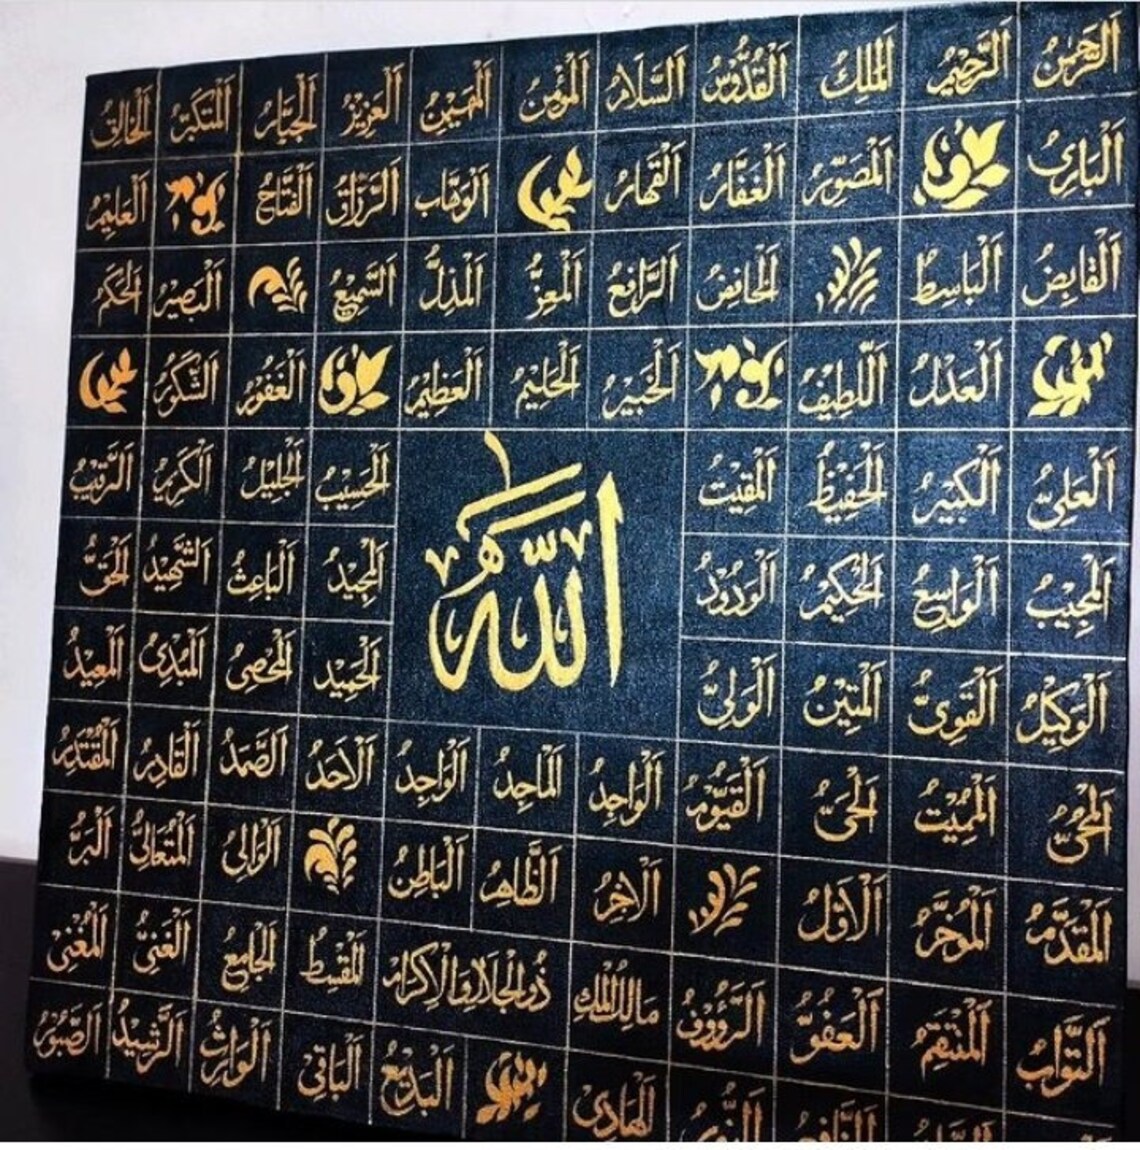 اَلرَّحْمٰنُ اَلرَّحِيْمُ اَلْمَلِكُ اَلْقُدُّوْسُ اَلسَّلَامُ اَلْمُؤْمِنُ اَلْمُهَيْمِنُ اَلْعَزِيْزُ اَلْجَبَّارُ اَلْمُتَكَبِّرُ اَلْخَالِقُ
اَلْبَارِئُ اَلْمُصَوِّرُ اَلْغَفَّارُ اَلْقَهَّارُ اَلْوَهَّابُ اَلرَّزَّاقُ اَلْفَتَّاحُ اَلْعَلِيْمُ
اَلْقَابِضُ اَلْبَاسِطُ اَلْخَافِضُ اَلرَّافِعُ اَلْمُعِزُّ اَلْمُذِلُّ اَلسَّمِيْعُ اَلْبَصِيْرُ اَلْحَكَمُ
اَلْعَدْلُ اَللَّطِيْفُ اَلْخَبِيْرُ اَلْحَلِيْمُ اَلْعَظِيْمُ اَلْغَفُوْرُ اَلشَّكُوْرُ
اَلْعَلِىُّ اَلْكَبِيْرُ اَلْحَفِيْظُ اَلْمُقِيْتُ اَلْحَسِيْبُ اَلْجَلِيْلُ اَلْكَرِيْمُ اَلرَّقِيْبُ
اَللّٰهُ
اَلْمُجِيْبُ اَلْوَاسِعُ اَلْحَكِيْمُ اَلْوَدُوْدُ اَلْمَجِيْدُ اَلْبَاعِثُ اَلشَّهِيْدُ اَلْحَقُّ
اَلْوَكِيْلُ اَلْقَوِىُّ اَلْمَتِيْنُ اَلْوَلِىُّ اَلْحَمِيْدُ اَلْمُحْصِى اَلْمُبْدِئُ اَلْمُعِيْدُ
اَلْمُحْىِ اَلْمُمِيْتُ اَلْحَىُّ اَلْقَيُّوْمُ اَلْوَاجِدُ اَلْمَاجِدُ اَلْوَاحِدُ اَلْاَحَدُ اَلصَّمَدُ اَلْقَادِرُ اَلْمُقْتَدِرُ
اَلْمُقَدِّمُ اَلْمُؤَخِّرُ اَلْاَوَّلُ اَلْاٰخِرُ اَلظَّاهِرُ اَلْبَاطِنُ اَلْوَالِى اَلْمُتَعَالِىُ اَلْبَرُّ
اَلتَّوَّابُ اَلْمُنْتَقِمُ اَلْعَفُوُّ اَلرَّؤُوْفُ مَالِكُ الْمُلْكِ ذُوالْجَلَالِ وَالْاِكْرَامِ اَلْمُقْسِطُ اَلْجَامِعُ اَلْغَنِىُّ اَلْمُغْنِى
اَلنَّافِعُ اَلنُّوْرُ اَلْهَادِى اَلْبَدِيْعُ اَلْبَاقِى اَلْوَارِثُ اَلرَّشِيْدُ اَلصَّبُوْرُ